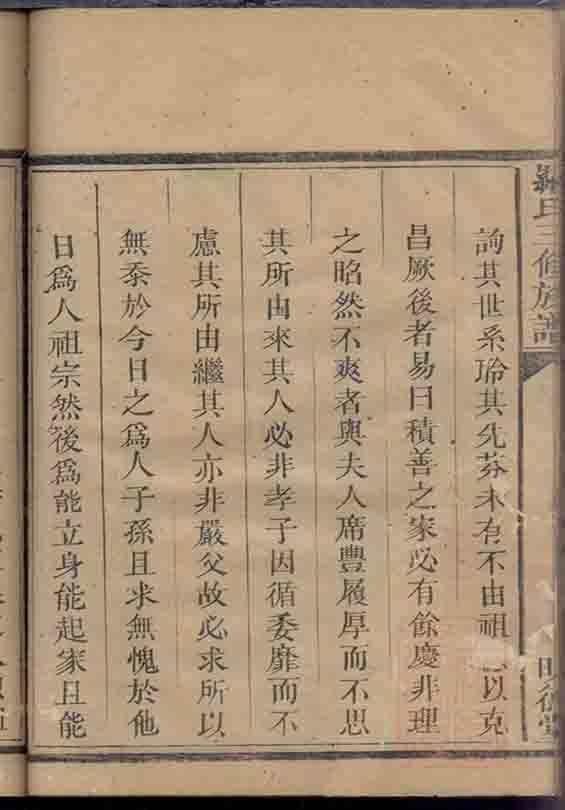 氏三修族譜
詢其世系診其先芬未有不由祖以克
昌厥後者易曰積善之家必有餘慶非理
之昭然不爽者與夫人席豐履厚而不思
其所由來其人必非孝子因循委靡而不
慮其所由繼其人亦非嚴父故必求所以
無忝於今日之爲人子孫且求無愧於他
日爲人祖宗然後爲能立身能起家且能